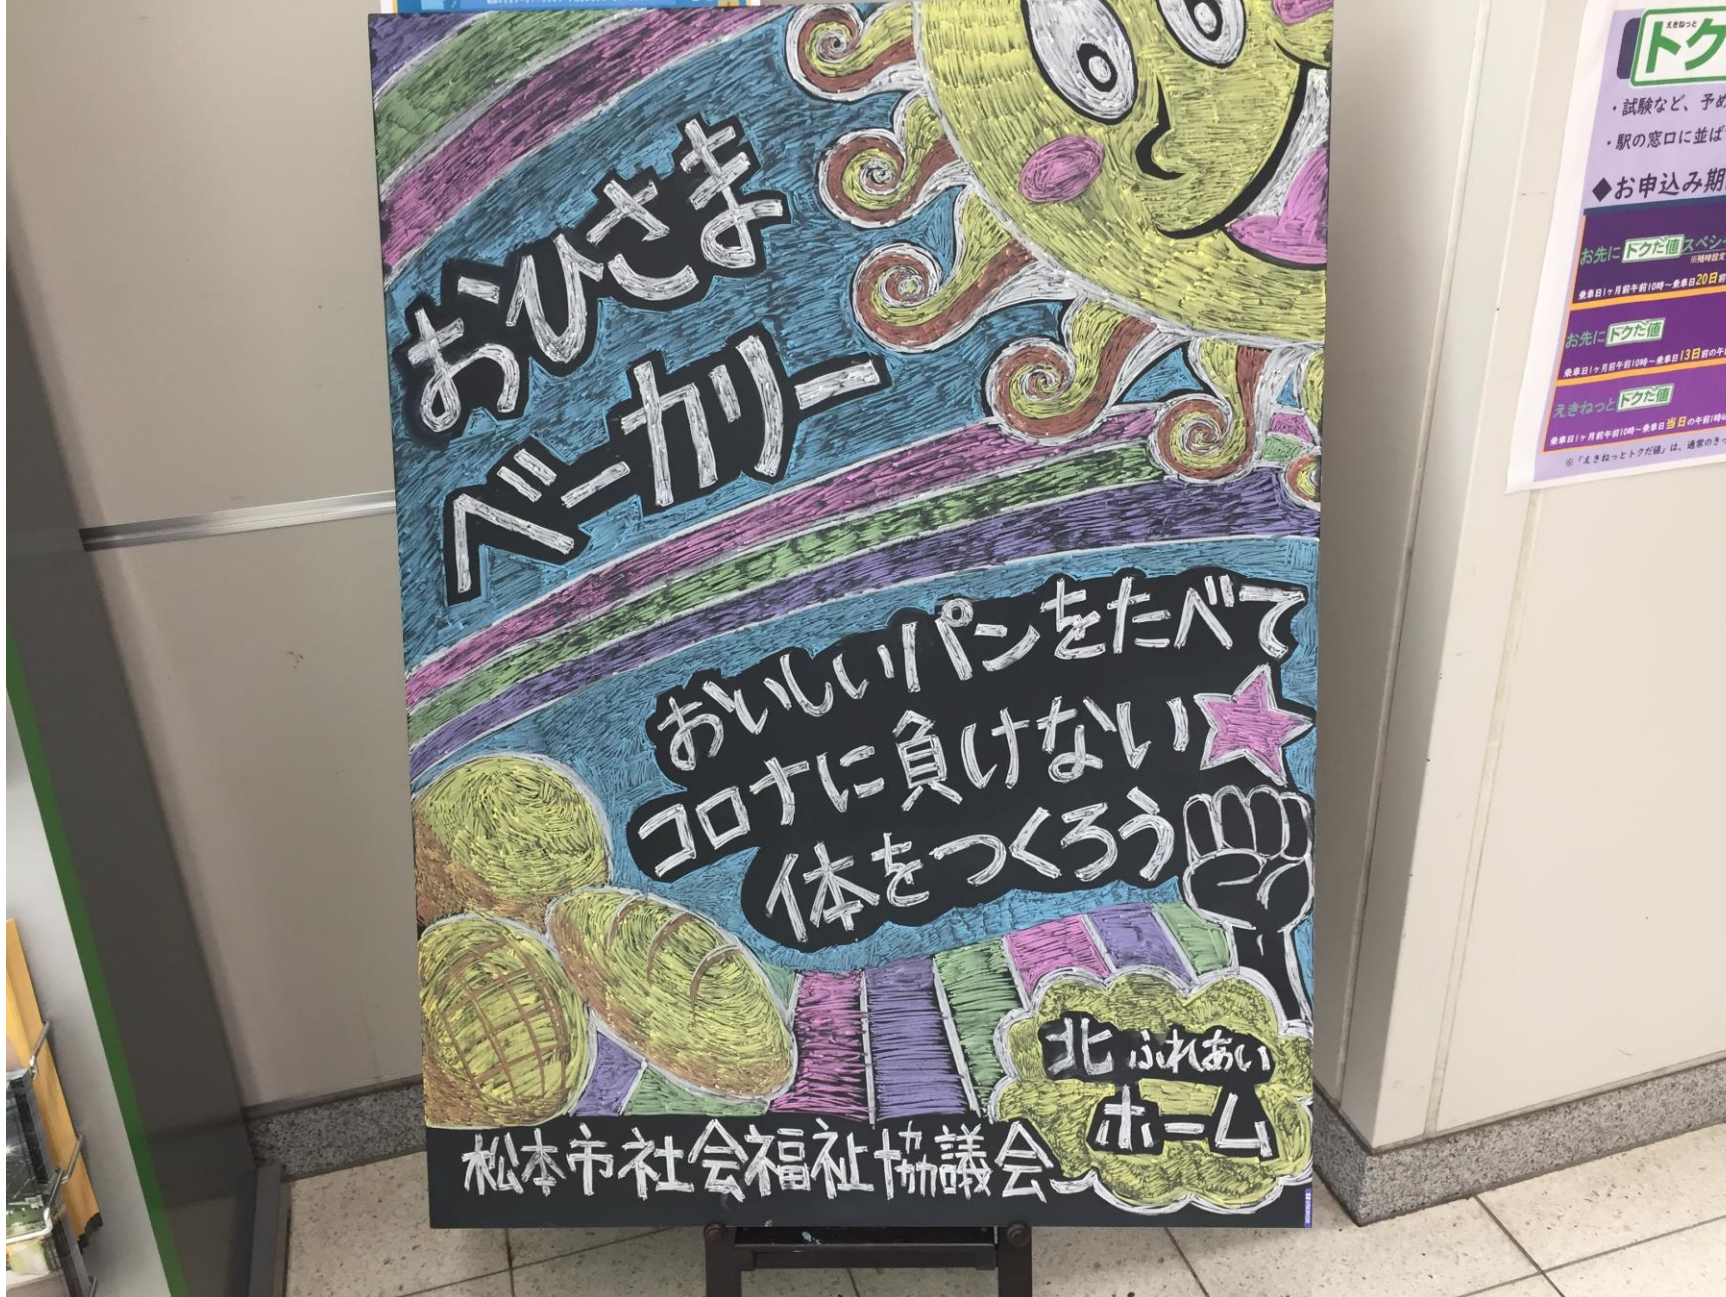 おひさま
ベーカリー
おいしいパンをたべて
コロナに負けない
体をつくろう
北ふれあい
ホーム
松本市社会福祉協議会
えきねっと
トク
・試験など、予め
・駅の窓口に並ば
◆お申込み期
お先にトクだ値スペシ
乗車日1ヶ月前午前10時〜乗車日20日前
お先にトクだ値
乗車日1ヶ月前午前10時〜乗車日13日前の午
えきねっとトクだ値
乗車日1ヶ月前午前10時〜乗車日当日の午前1時
※「えきねっとトクだ値」は、通常のきっ